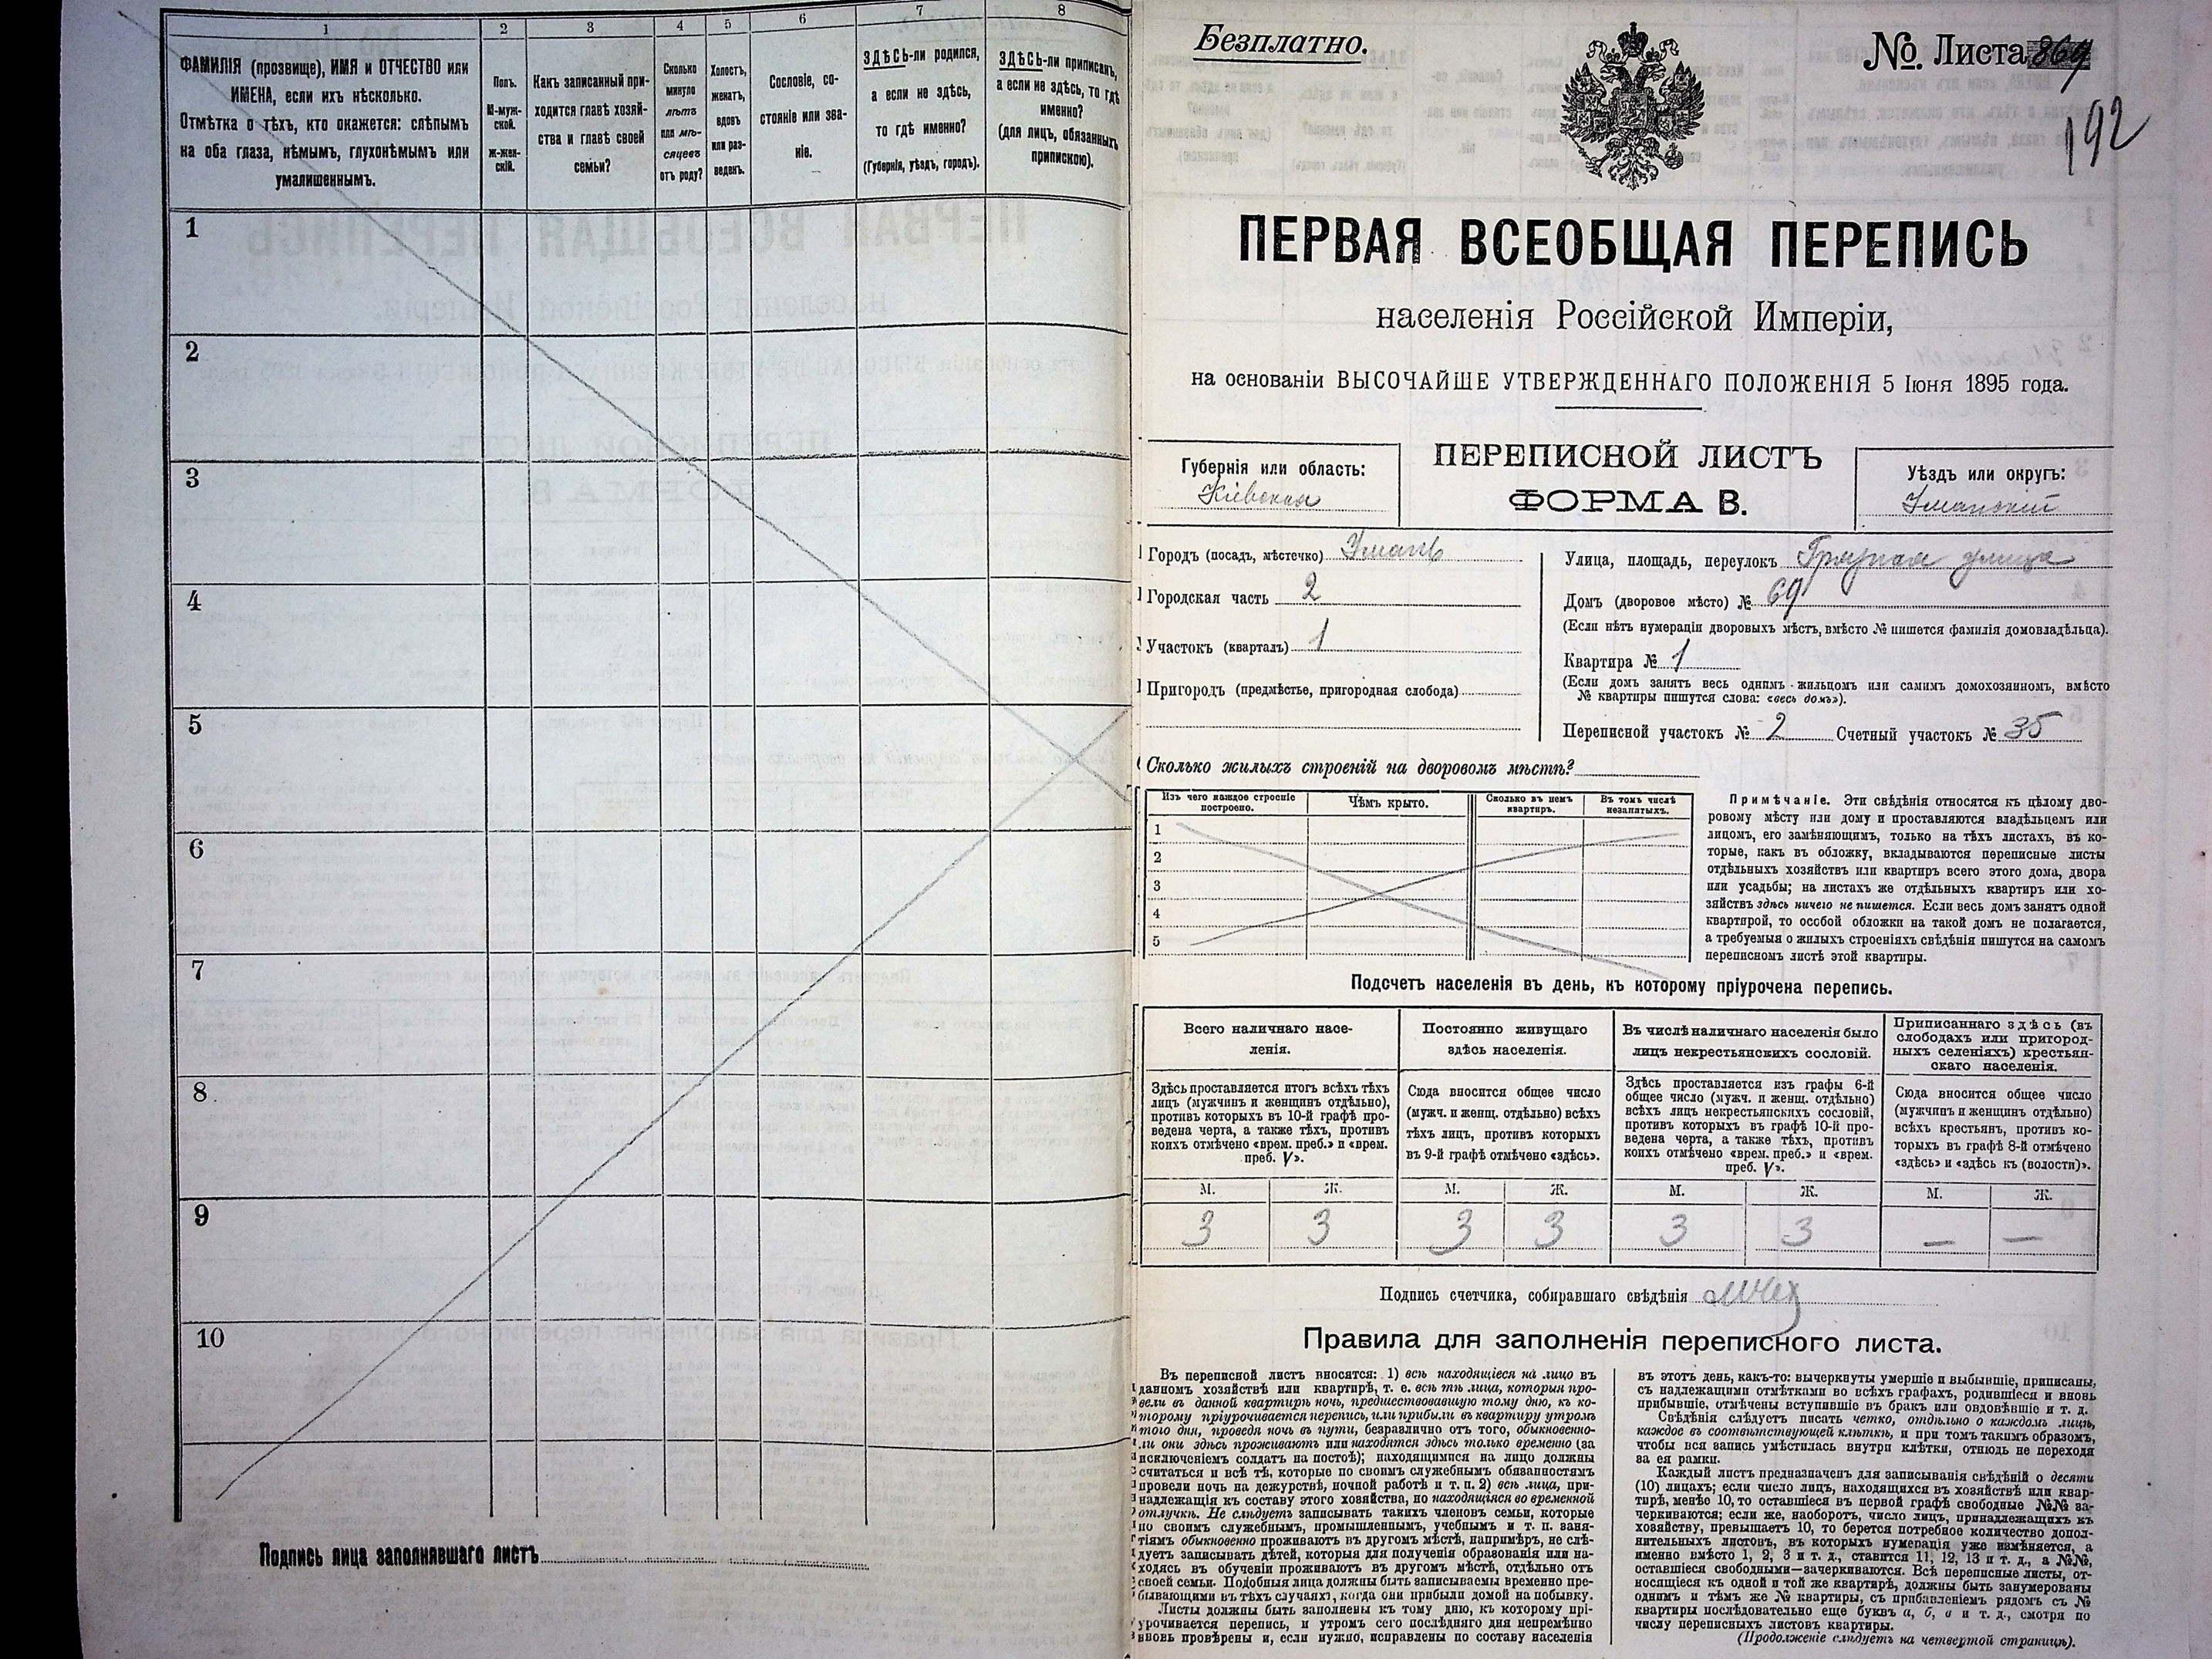 1 2 3 4 5 6 7 8
ФАМИЛІЯ (прозвище), ИМЯ и ОТЧЕСТВО или
ИМЕНА, если ихъ нѣсколько.
Отмѣтка о тѣхъ, кто окажется: слѣпымъ
на оба глаза, нѣмымъ, глухонѣмымъ или
умалишеннымъ.
Полъ.
М-муж-
ской.
Ж-жен-
скій.
Какъ записанный при-
ходится главѣ хозяй-
ства и главѣ своей
семьи?
Сколько
минуло
лѣтъ
или мѣ-
сяцевъ
отъ роду?
Холостъ,
женатъ,
вдовъ
или раз-
веденъ.
Сословіе, со-
стояніе или зва-
ніе.
ЗДѢСЬ-ли родился,
а если не здѣсь,
то гдѣ именно?
(Губернія, уѣздъ, городъ).
ЗДѢСЬ-ли приписанъ,
а если не здѣсь, то гдѣ
именно?
(для лицъ, обязанныхъ
припискою).
1
2
3
4
5
6
7
8
9
10
Подпись лица заполнявшаго листъ
Безплатно.
№. Листа 869
192
ПЕРВАЯ ВСЕОБЩАЯ ПЕРЕПИСЬ
населенія Россійской Имперіи,
на основаніи ВЫСОЧАЙШЕ УТВЕРЖДЕННАГО ПОЛОЖЕНІЯ 5 Іюня 1895 года.
Губернія или область:
Кіевская
ПЕРЕПИСНОЙ ЛИСТЪ
ФОРМА В.
Уѣздъ или округъ:
Уманскій
Городъ (посадъ, мѣстечко) Умань
Городская часть 2
Участокъ (кварталъ) 1
Пригородъ (предмѣстье, пригородная слобода)
Улица, площадь, переулокъ Грязная улица
Домъ (дворовое мѣсто) № 69
(Если нѣтъ нумераціи дворовыхъ мѣстъ, вмѣсто № пишется фамилія домовладѣльца).
Квартира № 1
(Если домъ занятъ весь однимъ жильцомъ или самимъ домохозяиномъ, вмѣсто
№ квартиры пишутся слова: «весь домъ»).
Переписной участокъ № 2 Счетный участокъ № 35
Сколько жилыхъ строеній на дворовомъ мѣстѣ?
Изъ чего каждое строеніе
построено.
Чѣмъ крыто.
Сколько въ немъ
квартиръ.
Въ томъ числѣ
незанятыхъ.
1
2
3
4
5
Примѣчаніе. Эти свѣдѣнія относятся къ цѣлому дво-
ровому мѣсту или дому и проставляются владѣльцемъ или
лицомъ, его замѣняющимъ, только на тѣхъ листахъ, въ ко-
торые, какъ въ обложку, вкладываются переписные листы
отдѣльныхъ хозяйствъ или квартиръ всего этого дома, двора
или усадьбы; на листахъ же отдѣльныхъ квартиръ или хо-
зяйствъ здѣсь ничего не пишется. Если весь домъ занятъ одной
квартирой, то особой обложки на такой домъ не полагается,
а требуемыя о жилыхъ строеніяхъ свѣдѣнія пишутся на самомъ
переписномъ листѣ этой квартиры.
Подсчетъ населенія въ день, къ которому пріурочена перепись.
Всего наличнаго насе-
ленія.
Здѣсь проставляется итогъ всѣхъ тѣхъ
лицъ (мужчинъ и женщинъ отдѣльно),
противъ которыхъ въ 10-й графѣ про-
ведена черта, а также тѣхъ, противъ
коихъ отмѣчено «врем. преб.» и «врем.
преб. V».
Постоянно живущаго
здѣсь населенія.
Сюда вносится общее число
(мужч. и женщ. отдѣльно) всѣхъ
тѣхъ лицъ, противъ которыхъ
въ 9-й графѣ отмѣчено «здѣсь».
Въ числѣ наличнаго населенія было
лицъ некрестьянскихъ сословій.
Здѣсь проставляется изъ графы 6-й
общее число (мужч. и женщ. отдѣльно)
всѣхъ лицъ некрестьянскихъ сословій,
противъ которыхъ въ графѣ 10-й про-
ведена черта, а также тѣхъ, противъ
коихъ отмѣчено «врем. преб.» и «врем.
преб. V».
Приписаннаго здѣсь (въ
слободахъ или пригород-
ныхъ селеніяхъ) крестьян-
скаго населенія.
Сюда вносится общее число
(мужчинъ и женщинъ отдѣльно)
всѣхъ крестьянъ, противъ ко-
торыхъ въ графѣ 8-й отмѣчено
«здѣсь» и «здѣсь къ (волости)».
М. Ж. М. Ж. М. Ж. М. Ж.
3 3 3 3 3 3 — —
Подпись счетчика, собиравшаго свѣдѣнія
Правила для заполненія переписного листа.
Въ переписной листъ вносятся: 1) всѣ находящіеся на лицо въ
данномъ хозяйствѣ или квартирѣ, т. е. всѣ тѣ лица, которыя про-
вели въ данной квартирѣ ночь, предшествовавшую тому дню, къ ко-
торому пріурочивается перепись, или прибыли въ квартиру утромъ
того дня, проведя ночь въ пути, безразлично отъ того, обыкновенно-
ли они здѣсь проживаютъ или находятся здѣсь только временно (за
исключеніемъ солдатъ на постоѣ); находящимися на лицо должны
считаться и всѣ тѣ, которые по своимъ служебнымъ обязанностямъ
провели ночь на дежурствѣ, ночной работѣ и т. п. 2) всѣ лица, при-
надлежащія къ составу этого хозяйства, но находящіяся во временной
отлучкѣ. Не слѣдуетъ записывать такихъ членовъ семьи, которые
по своимъ служебнымъ, промышленнымъ, учебнымъ и т. п. заня-
тіямъ обыкновенно проживаютъ въ другомъ мѣстѣ, напримѣръ, не слѣ-
дуетъ записывать дѣтей, которыя для полученія образованія или на-
ходясь въ обученіи проживаютъ въ другомъ мѣстѣ, отдѣльно отъ
своей семьи. Подобныя лица должны быть записываемы временно пре-
бывающими въ тѣхъ случаяхъ, когда они прибыли домой на побывку.
Листы должны быть заполнены къ тому дню, къ которому прі-
урочивается перепись, и утромъ сего послѣдняго дня непремѣнно
вновь провѣрены и, если нужно, исправлены по составу населенія
въ этотъ день, какъ-то: вычеркнуты умершіе и выбывшіе, приписаны,
съ надлежащими отмѣтками во всѣхъ графахъ, родившіеся и вновь
прибывшіе, отмѣчены вступившіе въ бракъ или овдовѣвшіе и т. д.
Свѣдѣнія слѣдуетъ писать четко, отдѣльно о каждомъ лицѣ,
каждое въ соотвѣтствующей клѣткѣ, и при томъ такимъ образомъ,
чтобы вся запись умѣстилась внутри клѣтки, отнюдь не переходя
за ея рамки.
Каждый листъ предназначенъ для записыванія свѣдѣній о десяти
(10) лицахъ; если число лицъ, находящихся въ хозяйствѣ или квар-
тирѣ, менѣе 10, то оставшіеся въ первой графѣ свободные №№ за-
черкиваются; если же, наоборотъ, число лицъ, принадлежащихъ къ
хозяйству, превышаетъ 10, то берется потребное количество допол-
нительныхъ листовъ, въ которыхъ нумерація уже измѣняется, а
именно вмѣсто 1, 2, 3 и т. д., ставится 11, 12, 13 и т. д., а №№,
оставшіеся свободными—зачеркиваются. Всѣ переписные листы, от-
носящіеся къ одной и той же квартирѣ, должны быть занумерованы
однимъ и тѣмъ же № квартиры, съ прибавленіемъ рядомъ съ №
квартиры послѣдовательно еще буквъ а, б, в и т. д., смотря по
числу переписныхъ листовъ квартиры.
(Продолженіе слѣдуетъ на четвертой страницѣ).